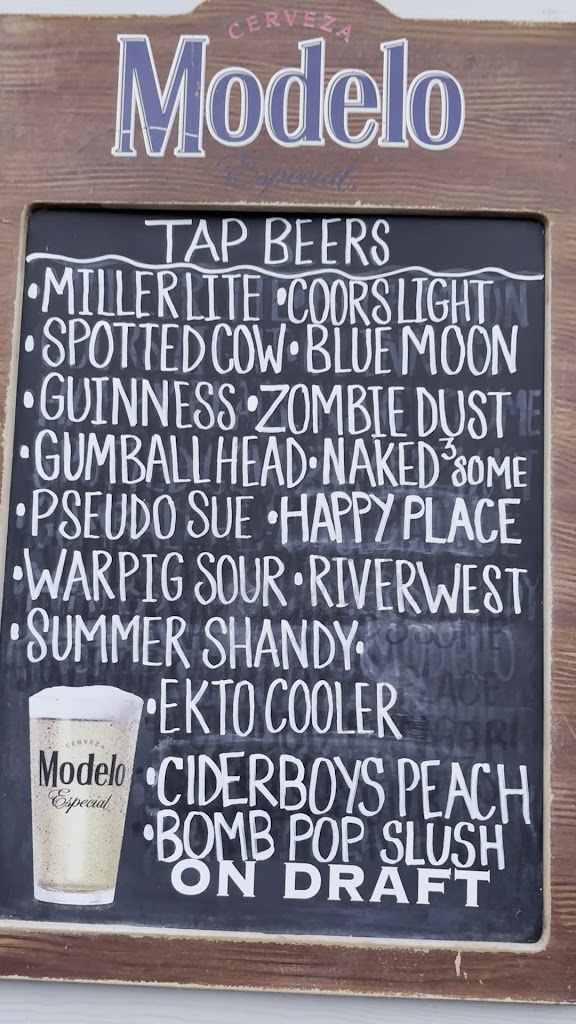 CERVEZA
Modelo
Especial
TAP BEERS
•MILLER LITE •COORS LIGHT
•SPOTTED COW •BLUE MOON
•GUINNESS •ZOMBIE DUST
•GUMBALLHEAD •NAKED 3SOME
•PSEUDO SUE •HAPPY PLACE
•WARPIG SOUR •RIVERWEST
•SUMMER SHANDY•
•EKTO COOLER
•CIDERBOYS PEACH
•BOMB POP SLUSH
ON DRAFT
CERVEZA
Modelo
Especial